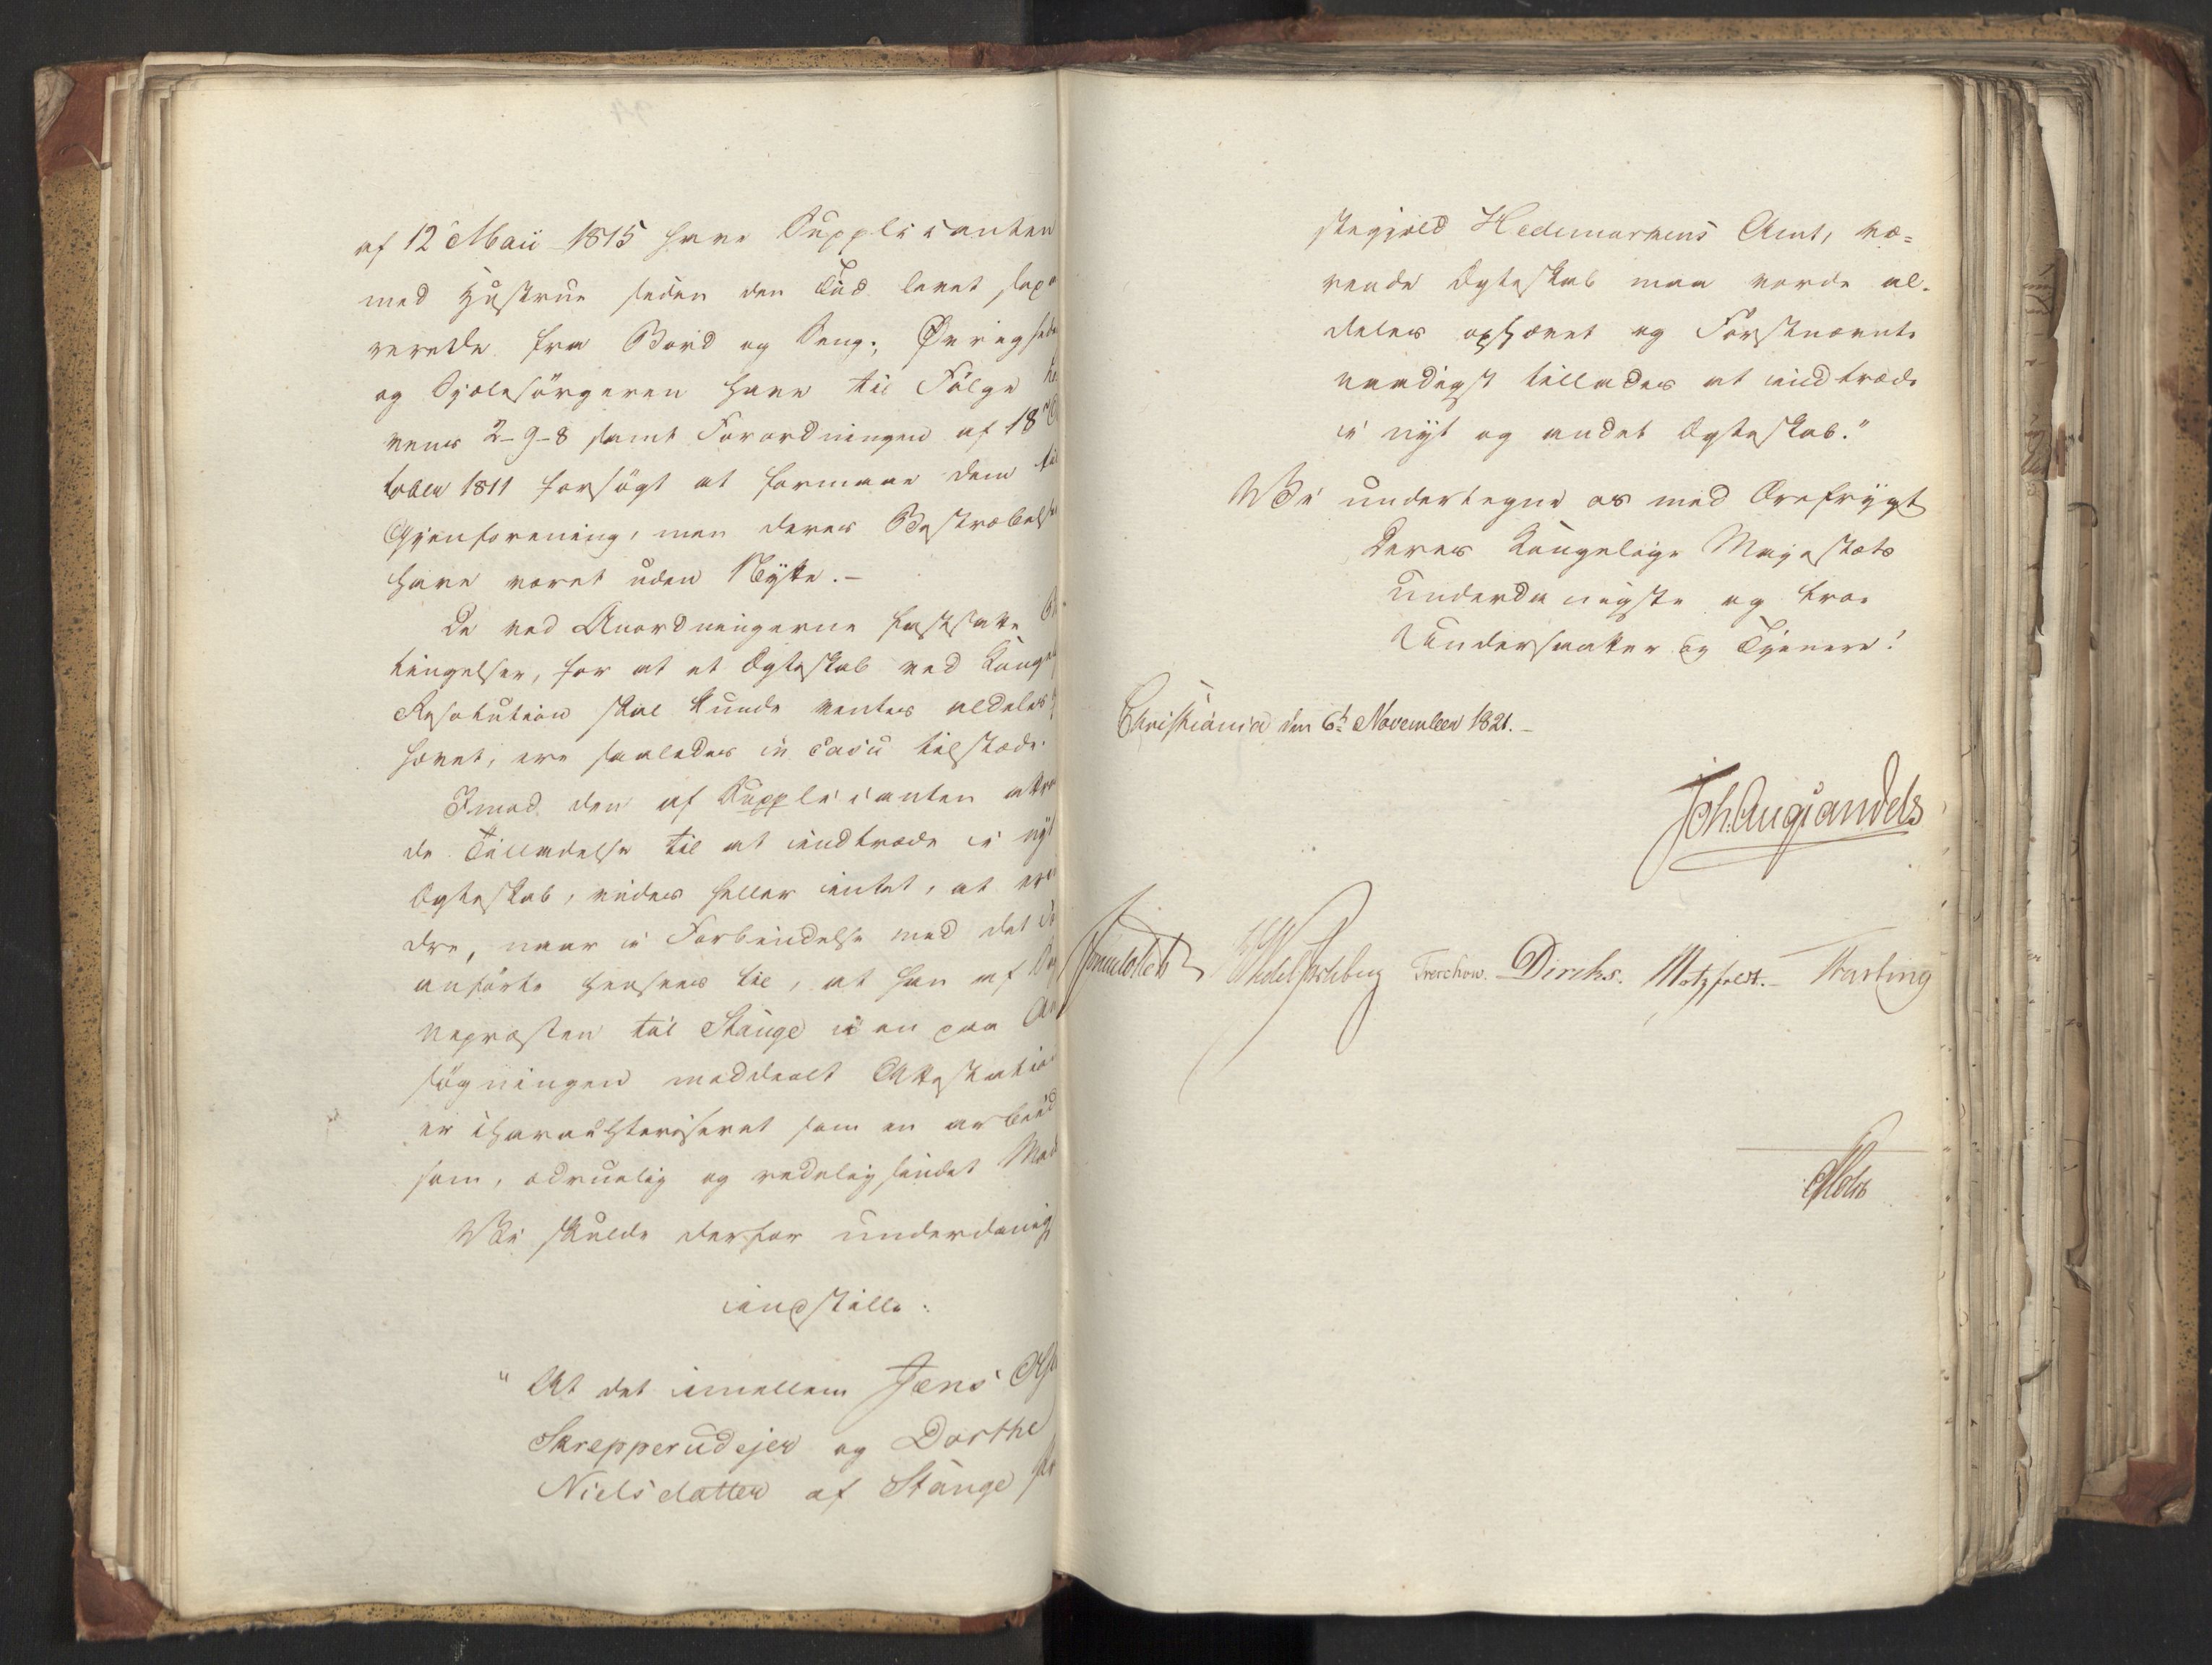 af 12 Maii 1815 have Supplicanten
med Hustrue siden den Tid levet sepa
rerede fra Bord og Seng; Øvrighede
og Sjelesørgeren have til Følge
vens 2-9-8 samt Forordningen af 18
tober 1811 forsögt at formaae dem til
Gjenforening, men deres Bestræbelse
have været uden Nytte.-
De ved Anordningerne fastsatte Be
tingelser, for at et Ægteskab ved Kongel
Resolution skal kunde ventes aldeles
hævet, ere saaledes in casu tilstæde.
Imod den af Supplicanten attraa
de Tilladelse til at indtræde i nyt
Ægteskab, vides heller intet, at erin
dre, naar i Forbindelse med det
anförte henses til, at han af
nepræsten til Stange i en paa An
søgningen meddeelt Attestation
er charachteriseret som en arbeid
som, ædruelig og redeligsindet Mand
Vi skulde derfor underdanigst
indstille:
" At det imellem Jens
Skrepperudejer og Dorthe
Nielsdatter af Stange Præ
stegjeld Hedemarkens Amt, væ=
rende Ægteskab maa vorde al-
deles ophævet og Førstnævnte
naadigst tillades at indtræde
i nyt og andet Ægteskab."
Vi undertegne os med Ærefrygt
Deres Kongelige Majestæts
underdanigste og troe
Undersaatter og Tjenere!
Christiania den 6t November 1821.-
Joh. Aug Sandels
Sommerfeldt Wedel Jarlsberg Treschow. Diriks. Motzfeldt.- Fasting
Holst